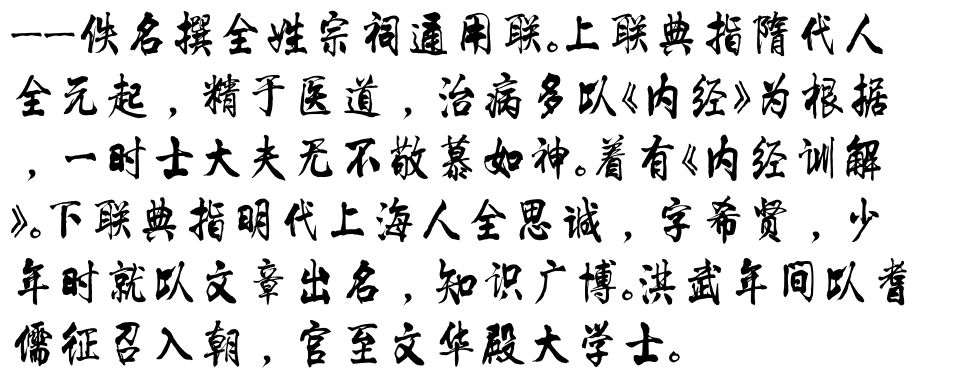 ——佚名撰全姓宗祠通用联。上联典指隋代人
全元起，精于医道，治病多以《内经》为根据
，一时士大夫无不敬慕如神。着有《内经训解
》。下联典指明代上海人全思诚，字希贤，少
年时就以文章出名，知识广博。洪武年间以耆
儒征召入朝，官至文华殿大学士。